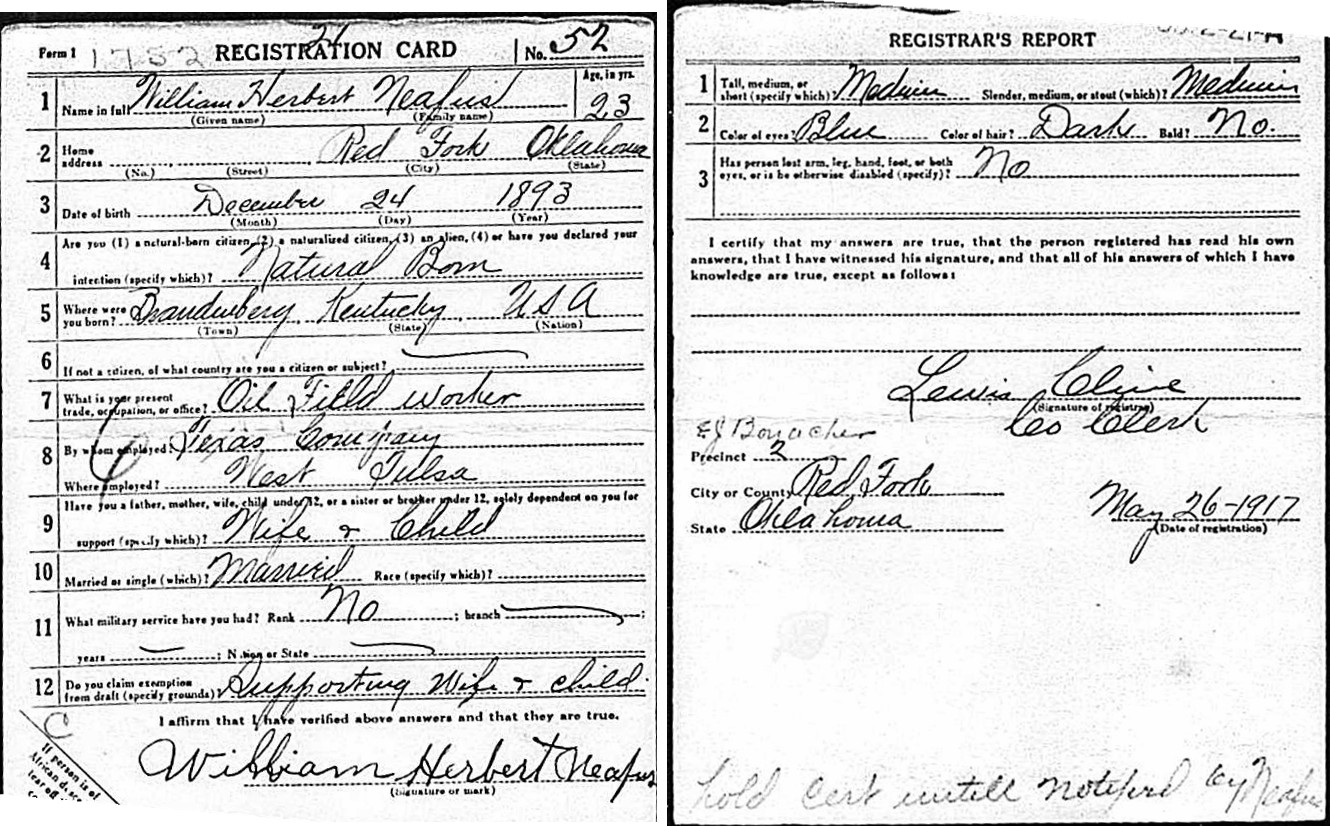 Form 1 1752 REGISTRATION CARD No. 52
21
Age, in yrs.
1 Name in full William Herbert Neafus 23
(Given name) (Family name)
2 Home address Red Fork Oklahoma
(No.) (Street) (City) (State)
3 Date of birth December 24 1893
(Month) (Day) (Year)
4 Are you (1) a natural-born citizen, (2) a naturalized citizen, (3) an alien, (4) or have you declared your
intention (specify which)? Natural Born
5 Where were you born? Brandenberg Kentucky USA
(Town) (State) (Nation)
6 If not a citizen, of what country are you a citizen or subject?
7 What is your present
trade, occupation, or office? Oil Field worker
8 By whom employed? Texas Company
Where employed? West Tulsa
9 Have you a father, mother, wife, child under 12, or a sister or brother under 12, solely dependent on you for
support (specify which)? Wife & Child
10 Married or single (which)? Married Race (specify which)?
11 What military service have you had? Rank No ; branch ;
years ; Nation or State
12 Do you claim exemption
from draft (specify grounds)? Supporting Wife & child.
I affirm that I have verified above answers and that they are true.
C
William Herbert Neafus
(Signature or mark)
If person is of
African
tear off
REGISTRAR'S REPORT
1 Tall, medium, or
short (specify which)? Medium Slender, medium, or stout (which)? Medium
2 Color of eyes? Blue Color of hair? Dark Bald? No.
3 Has person lost arm, leg, hand, foot, or both
eyes, or is he otherwise disabled (specify)? No
I certify that my answers are true, that the person registered has read his own
answers, that I have witnessed his signature, and that all of his answers of which I have
knowledge are true, except as follows:
Lewis Cline
(Signature of registrar)
Co Clerk
EJ
Precinct 2
City or County Red Fork
State Oklahoma
May 26-1917
(Date of registration)
hold cert untill notified by Neafus